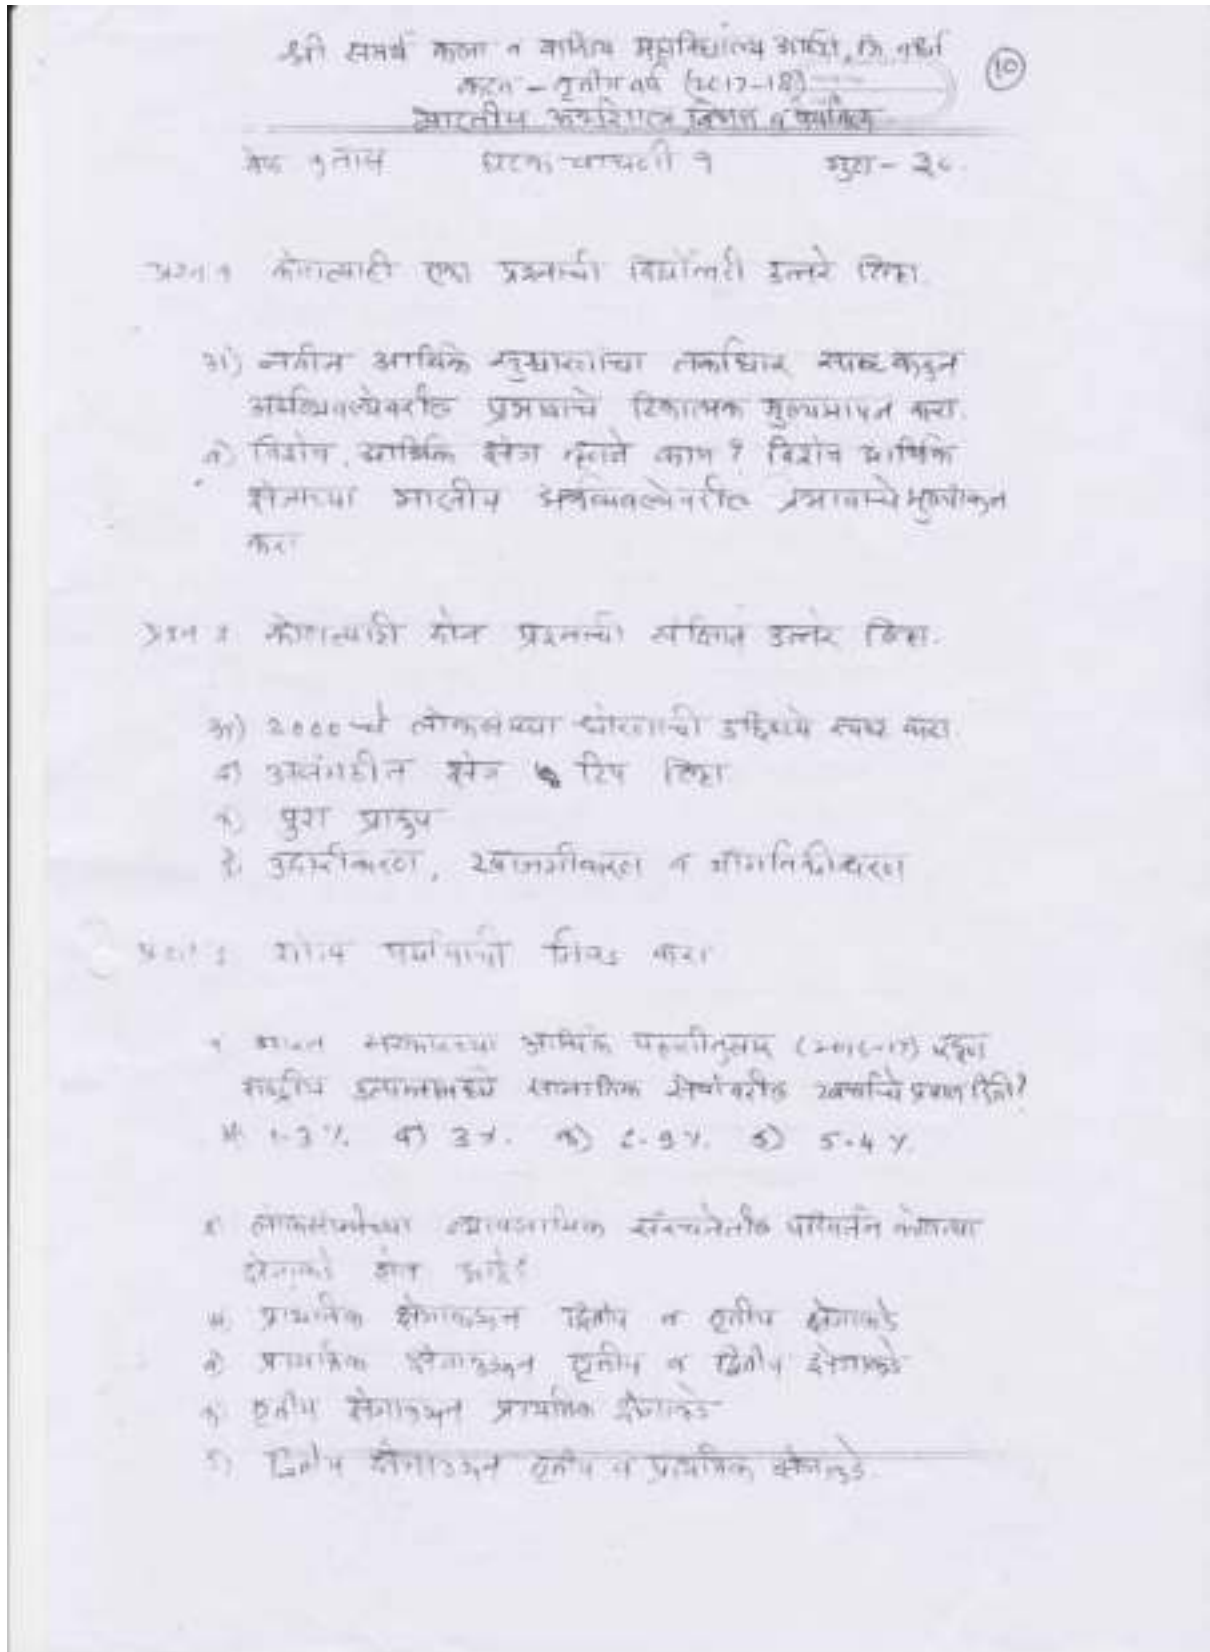 श्री समर्थ कला व वाणिज्य महाविद्यालय आष्टी,
कला - तृतीय वर्ष (2017-18)
भारतीय अर्थशास्त्र विकास व
वेळ १ तास घटक चाचणी १ गुण - ३०.
प्रश्न १ कोणत्याही एका प्रश्नाची दिर्घोत्तरी उत्तरे लिहा.
अ) नवीन आर्थिक सुधारणांचा तर्काधार स्पष्ट करून
अर्थव्यवस्थेवरील प्रभावाचे टिकात्मक मुल्यमापन करा.
ब) विशेष आर्थिक क्षेत्र म्हणजे काय? विशेष आर्थिक
क्षेत्राच्या भारतीय अर्थव्यवस्थेवरील प्रभावाचे मुल्यांकन
करा
प्रश्न २ कोणत्याही दोन प्रश्नाची संक्षिप्त उत्तरे लिहा.
अ) 2000 चे लोकसंख्या धोरणाची उद्दिष्टये स्पष्ट करा.
ब) असंगठीत क्षेत्र टिप लिहा
क) पुरा प्रारुप
ड) उदारीकरण, खाजगीकरण व जागतिकीकरण
प्रश्न ३ योग्य पर्यायाची निवड करा
१ भारत सरकारच्या आर्थिक पाहणीनुसार (2016-17) एकूण
राष्ट्रीय उत्पन्नामध्ये सामाजिक सेवांवरील खर्चाचे प्रमाण किती?
ब) 3%. ड) 5.4 %.
२ लोकसंख्येच्या व्यावसायिक संरचनेतील परिवर्तन कोणत्या
क्षेत्राकडे होत आहे?
अ) प्राथमिक क्षेत्राकडून द्वितीय व तृतीय क्षेत्राकडे
ब) प्राथमिक क्षेत्राकडून तृतीय व द्वितीय क्षेत्राकडे
क) तृतीय क्षेत्राकडून प्राथमिक क्षेत्राकडे
ड) द्वितीय क्षेत्राकडून तृतीय व प्राथमिक क्षेत्राकडे.
10